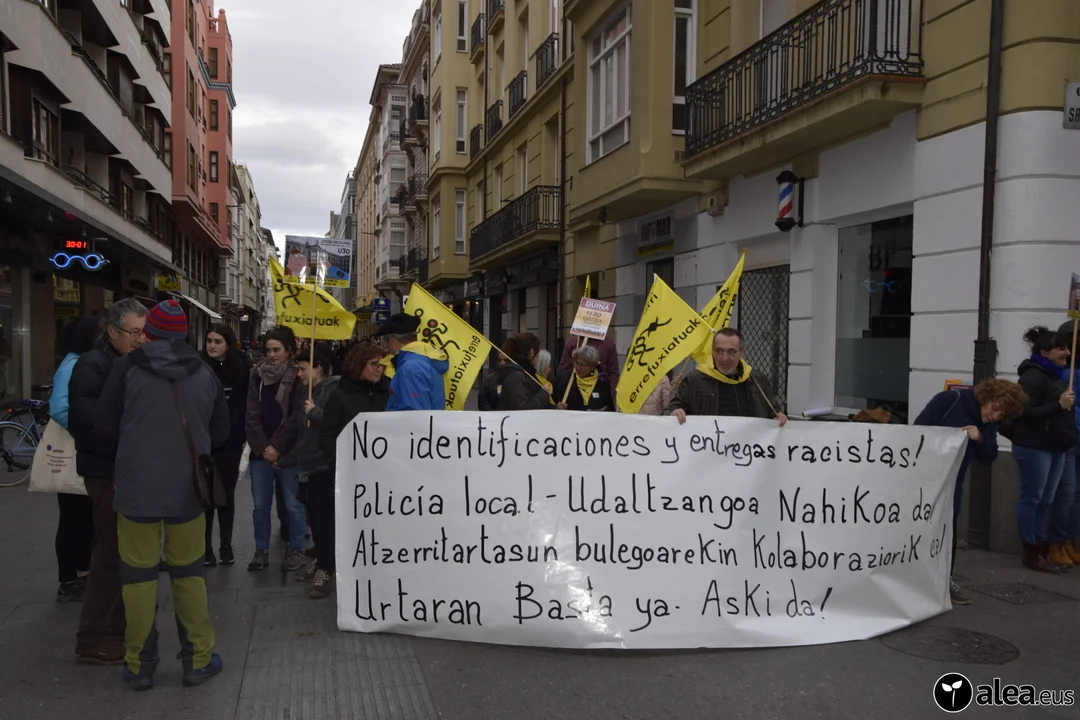 No identificaciones y entregas racistas!
Policía local - Udaltzangoa Nahikoa da
Atzerritartasun bulegoarekin Kolaboraziorik ez!
Urtaran Basta ya. Aski da!
errefuxiatuak
errefuxiatuak
errefuxiatuak
DUINA
30:0
alea.eus